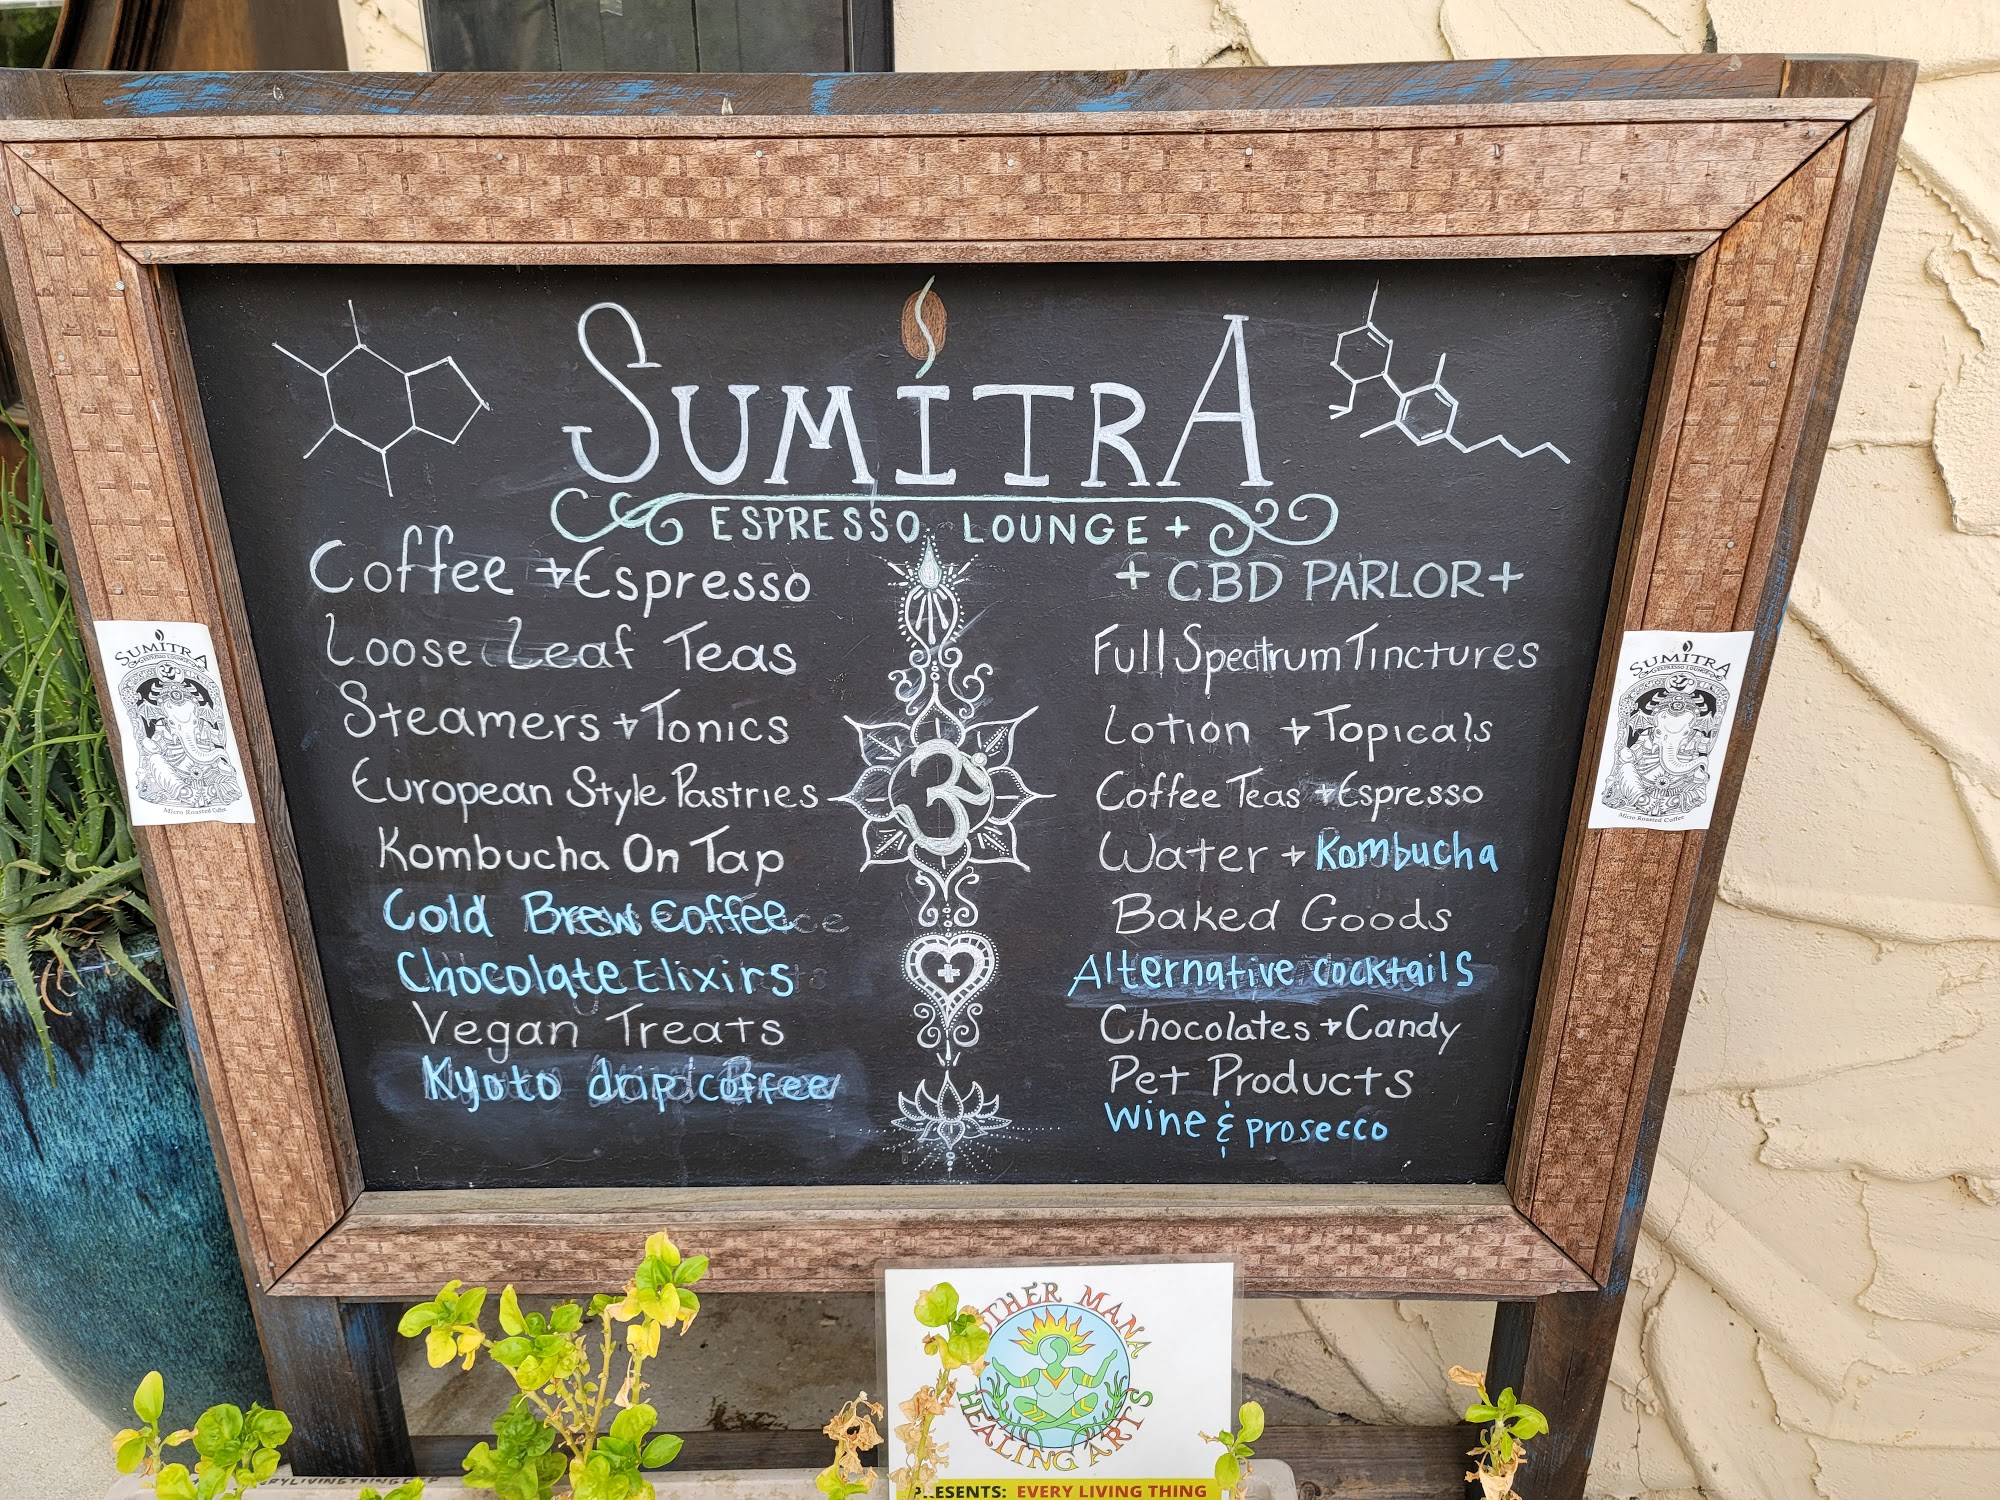 SUMITRA
ESPRESSO LOUNGE +
Coffee + Espresso
Loose Leaf Teas
Steamers + Tonics
European Style Pastries
Kombucha On Tap
Cold Brew Coffee
Chocolate Elixirs
Vegan Treats
Kyoto drip coffee
+ CBD PARLOR +
Full Spectrum Tinctures
Lotion + Topicals
Coffee Teas + Espresso
Water + Kombucha
Baked Goods
Alternative cocktails
Chocolates + Candy
Pet Products
Wine & prosecco
SUMITRA
ESPRESSO LOUNGE
Micro Roasted Coffee
SUMITRA
ESPRESSO LOUNGE
Micro Roasted Coffee
MANA
HEALING ARTS
PRESENTS: EVERY LIVING THING